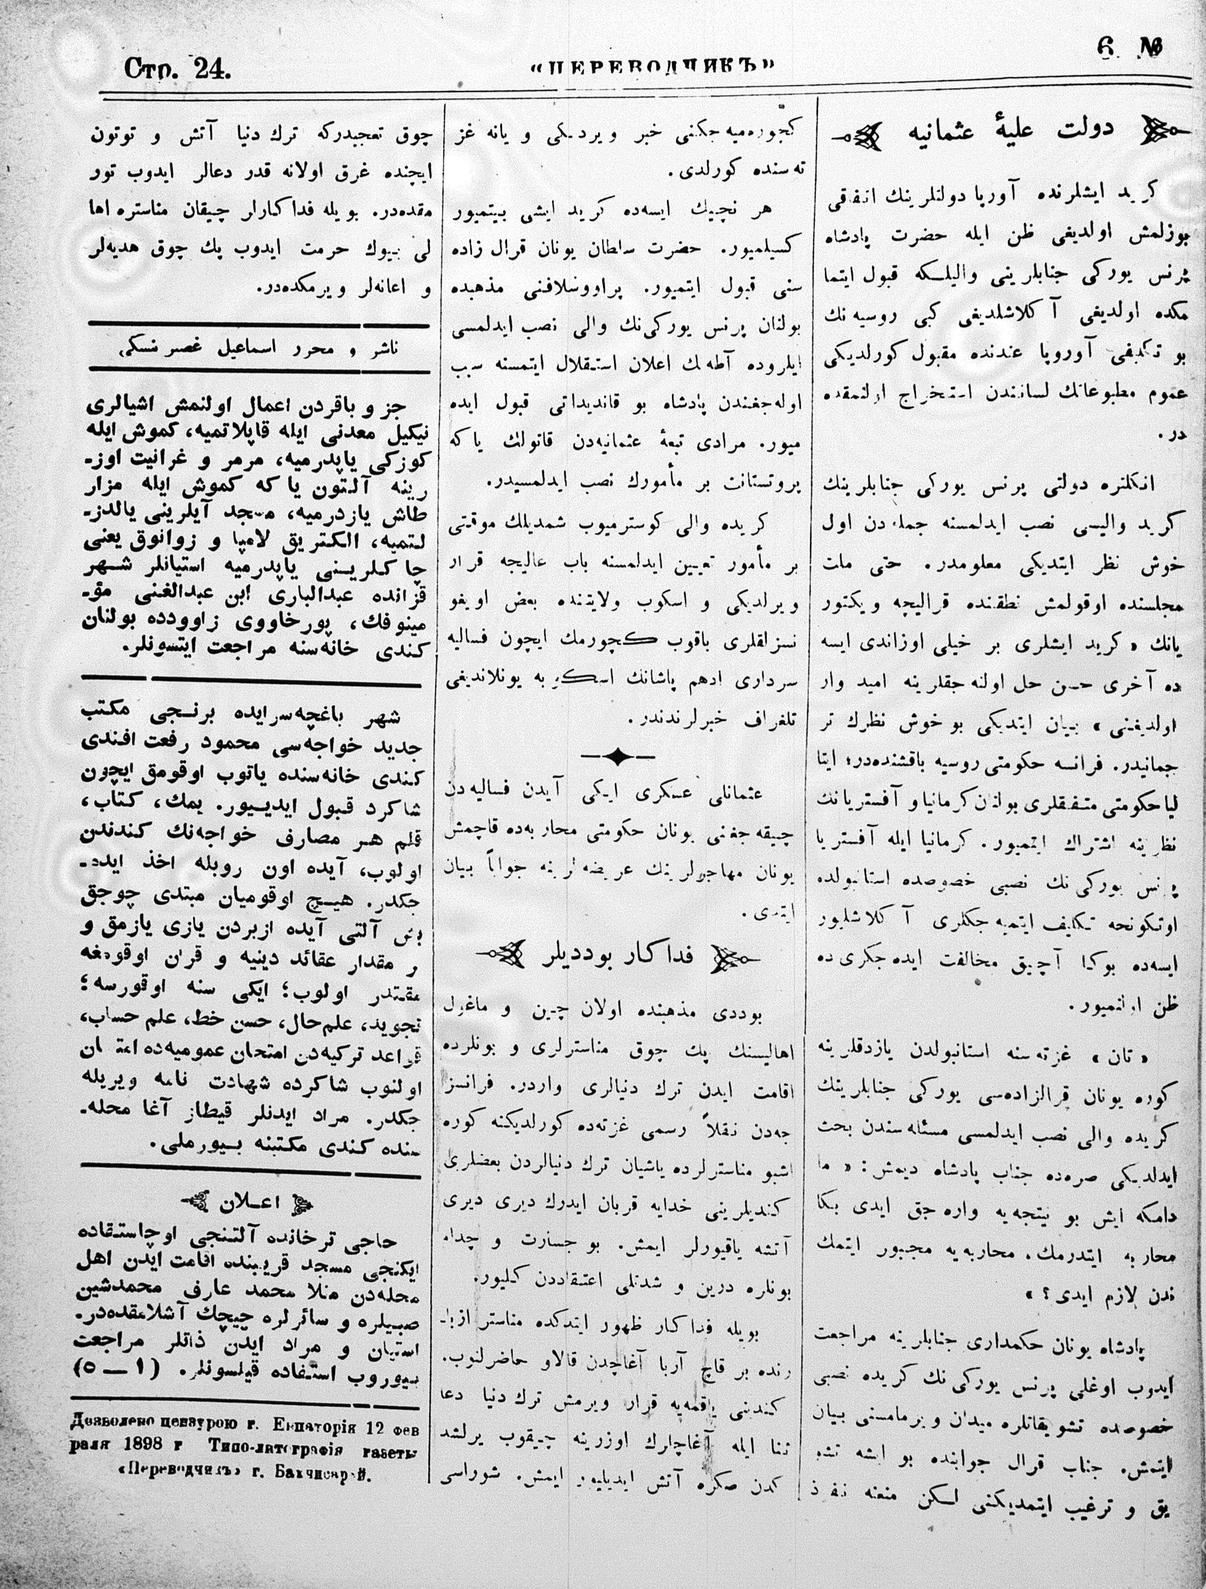 Стр. 24.
“ПЕРЕВОДЧИКЪ”
6 №
دولت علیهٔ عثمانیه
كرید ایشلرنده آوروپا دولتلرینك اتفاقی
بوزلمش اولدیغی ظن ایله حضرت پادشاه
پرنس یوركی جنابلرینی والیلكه قبول ایتما
مكده اولدیغی آكلاشلدیغی كبی روسیه نك
بو تكلیفی آوروپا عندنده مقبول كورلدیكی
عموم مطبوعاتك لسانندن استخراج اولنمقده
در.
انكلتره دولتی پرنس یوركی جنابلرینك
كرید والیسی نصب ایدلمسنه جمله دن اول
خوش نظر ایتدیكی معلومدر. حتی ملت
مجلسنده اوقولمش نطقنده قرالیچه ویكتور
یانك «كرید ایشلری بر خیلی اوزاندی ایسه
ده آخری حسن حل اولنه جقلرینه امید وار
اولدیغنی» بیان ایتدیكی بو خوش نظرك تر
جمانیدر. فرانسه حكومتی روسیه باقشنده در؛ ایتا
لیا حكومتی متفقلری بولنان كرمانیا و آفستریانك
نظرینه اشتراك ایتمیور. كرمانیا ایله آفستریا
پرنس یوركی نك نصبی خصوصده استانبولده
اوتكونجه تكلیف ایتمیه جكلری آكلاشلیور
ایسه ده بوكا آچیق مخالفت ایده جكری ده
ظن اولنمیور.
«تان» غزته سنه استانبولدن یازدقلرینه
كوره یونان قرالزاده سی یوركی جنابلرینك
كریده والی نصب ایدلمسی مسئله سندن بحث
ایدلدیكی صره ده جناب پادشاه دیمش: «ما
دامكه ایش بو نیتجه یه واره جق ایدی بكا
محاربه ایتدرمك، محاربه یه مجبور ایتمك
ندن لازم ایدی؟»
پادشاه یونان حكمداری جنابلرینه مراجعت
ایدوب اوغلی پرنس یوركی نك كریده نصبی
خصوصده تشویقاتلره میدان ویرمامسنی بیان
ایتمش. جناب قرال جوابنده بو ایشه تشو
یق و ترغیب ایتمدیكنی لكن منعنه نفوذ
كجورمیه جكنی خبر ویردیكی و یانه غز
ته سنده كورلدی.
هر نچیك ایسه ده كرید ایشی بیتمیور
كسیلمیور. حضرت سلطان یونان قرال زاده
سنی قبول ایتمیور. پراووسلافنی مذهبده
بولنان پرنس یوركی نك والی نصب ایدلمسی
ایلروده آطه نك اعلان استقلال ایتمسنه سبب
اوله جغندن پادشاه بو قاندیداتی قبول ایده
میور. مرادی تبعهٔ عثمانیه دن قاتولك یا كه
پروتستانت بر مأمورك نصب ایدلمسیدر.
كریده والی كوسترمیوب شمدیلك موقتی
بر مأمور تعیین ایدلمسنه باب عالیجه قرار
ویرلدیكی و اسكوب ولایتنده بعض اویغو
نسزلقلری باقوب كچورمك ایچون فسالیه
سرداری ادهم پاشانك اسكوبه یونلاندیغی
تلغراف خبرلرندندر.
عثمانلی عسكری ایكی آیدن فسالیه دن
چیقه جغنی یونان حكومتی محاربه ده قاچمش
یونان مهاجرلرینك عریضه لرینه جواباً بیان
ایتدی.
فداكار بوددیلر
بوددی مذهبنده اولان چین و ماغول
اهالیسنك پك چوق مناسترلری و بونلرده
اقامت ایدن ترك دنیالری واردر. فرانسز
جه دن نقلاً رسمی غزته ده كورلدیكنه كوره
اشبو مناسترلرده یاشیان ترك دنیالردن بعضلری
كندیلرینی خدایه قربان ایدرك دیری دیری
آتشه یاقیورلر ایمش. بو جسارت و چدام
بونلره درین و شدتلی اعتقاددن كلیور.
بویله فداكار ظهور ایتدكده مناستر ازبا
رنده بر قاچ آربا آغاچدن قالاو حاضرلنوب.
كندینی یاقمه یه قرار ویرمش ترك دنیا دعا
ثنا ایله آغاچلرك اوزرینه چیقوب یرلشد
كدن صكره آتش ایدیلیور ایمش. شوراسی
چوق تعجیدركه ترك دنیا آتش و توتون
ایچنده غرق اولانه قدر دعالر ایدوب تور
مقده در. بویله فداكارلر چیقان مناستره اها
لی بیوك حرمت ایدوب پك چوق هدیه لر
و اعانه لر ویرمكده در.
ناشر و محرر اسماعیل غصپرنسكی
جز و باقردن اعمال اولنمش اشیالری
نیكیل معدنی ایله قاپلاتمیه، كموش ایله
كوزكی یاپدرمیه، مرمر و غرانیت اوز-
رینه آلتون یا كه كموش ایله مزار
طاش یازدرمیه، مسجد آیلرینی یالدز-
لتمیه، الكتریق لامپا و زوانوق یعنی
چاكلرینی یاپدرمیه استیانلر شهر
قزانده عبدالباری ابن عبدالغنی مؤ-
مینوفك، پورخاووی زاوودده بولنان
كندی خانه سنه مراجعت ایتسونلر.
شهر باغچه سرایده برنجی مكتب
جدید خواجه سی محمود رفعت افندی
كندی خانه سنده یاتوب اوقومق ایچون
شاكرد قبول ایدییور. یمك، كتاب،
قلم هر مصارف خواجه نك كندندن
اولوب، آیده اون روبله اخذ ایده-
جكدر. هیچ اوقومیان مبتدی چوجق
بش آلتی آیده ازبردن یازی یازمق و
بر مقدار عقائد دینیه و قران اوقومغه
مقتدر اولوب؛ ایكی سنه اوقورسه؛
تجوید، علم حال، حسن خط، علم حساب،
قواعد تركیه دن امتحان عمومیه ده امتحان
اولنوب شاكرده شهادت نامه ویریله
جكدر. مراد ایدنلر قیطاز آغا محله-
سنده كندی مكتبنه بیورملی.
اعلان
حاجی ترخانده آلتنجی اوچاستقاده
ایكنجی مسجد قریبنده اقامت ایدن اهل
محله دن منلا محمد عارف محمدشین
صبیلره و سائرلره چیچك آشلامقده در.
استیان و مراد ایدن ذاتلر مراجعت
بیوروب استفاده قیلسونلر. (١ — ٥)
Дозволено цензурою г. Евпаторія 12 фев
раля 1898 г Типо-литографія газеты
«Переводчикъ» г. Бахчисарай.